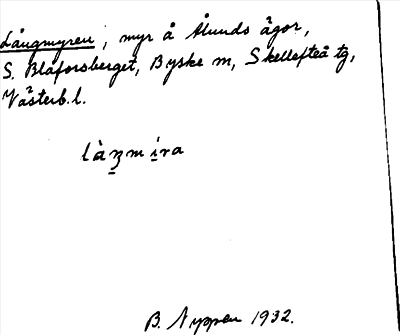 Långmyren, myr å Ålunds ägor,
S. Blåforsberget, Byske m, Skellefteå tg,
Västerb. l.
làŋmíra
B. Nyppen 1932.